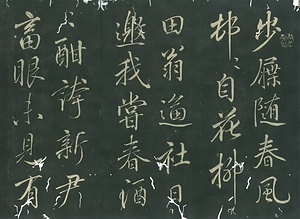 步屧随春風
邨〻自花柳
田翁逼社日
邀我嘗春酒
〻酣誇新尹
畜眼未見有